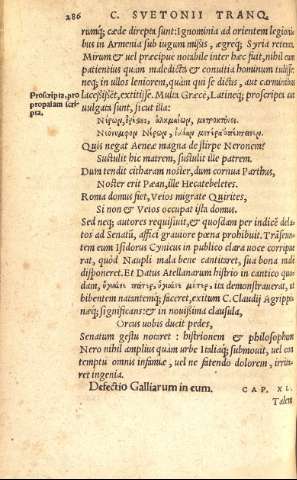 286 C. SVETONII TRANQ.
rumq́; cæde direpta sunt: Ignominia ad orientem legioni-
bus in Armenia sub iugum missis, ægreq́; Syria retenta.
Mirum & uel præcipue notabile inter hæc fuit, nihil eum
patientius quàm maledicta & conuitia hominum tulisse:
neq́; in ullos leniorem, quàm qui se dictis, aut carminibus
Proscripta. pro
propalam scri-
pta.
lacessissēt, extitisse. Multa Græcè, Latineq́; proscripta et
uulgata sunt, sicut illa:
Νέρων, ὀρέστης, ἀλκμαίων, μητροκτόνοι.
Νεόνυμφον Νέρων, ἰδίαν μητέρα ἀπέκτεινεν.
Quis negat Aeneæ magna de stirpe Neronem?
Sustulit hic matrem, sustulit ille patrem.
Dum tendit citharam noster, dum cornua Parthus,
Noster erit Pæan, ille Hecatebeletes.
Roma domus fiet, Veios migrate Quirites,
Si non & Veios occupat ista domus.
Sed neq́; autores requisiuit, & quosdam per indicē dela-
tos ad Senatū, affici grauiore pœna prohibuit. Trāseun-
tem eum Isidorus Cynicus in publico clara uoce corripue
rat, quòd Naupli mala bene cantitaret, sua bona malè
disponeret. Et Datus Atellanarum histrio in cantico quo
dam, ὑγίαινε πάτερ, ὑγίαινε μῆτερ, ita demonstrauerat, ut
bibentem natantemq́; faceret, exitum C. Claudij Agrippi-
næq́; significans: & in nouissima clausula,
Orcus uobis ducit pedes,
Senatum gestu notaret: histrionem & philosophum
Nero nihil amplius quàm urbe Italiaq́; submouit, uel con
temptu omnis infamiæ, uel ne fatendo dolorem, irrita-
ret ingenia.
Defectio Galliarum in eum. CAP. XL.
Talem